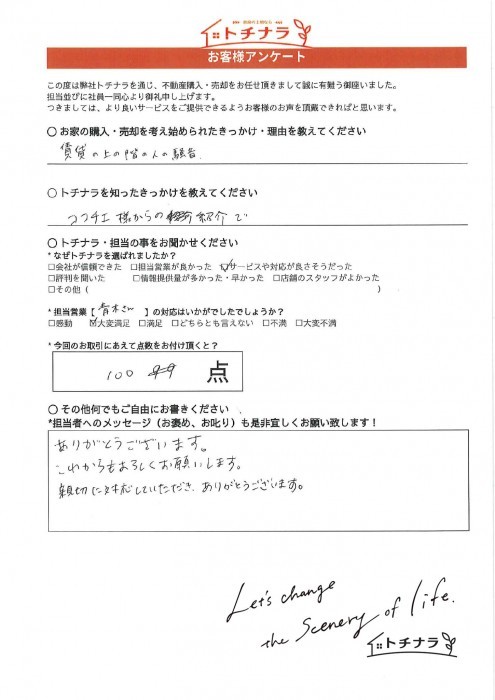 トチナラ
お客様アンケート
この度は弊社トチナラを通じ、不動産購入・売却をお任せ頂きまして誠に有難う御座いました。
担当並びに社員一同心より御礼申し上げます。
つきましては、より良いサービスをご提供できるようお客様のお声を頂戴できればと思います。
○ お家の購入・売却を考え始められたきっかけ・理由を教えてください
賃貸の上の階の人の騒音.
○ トチナラを知ったきっかけを教えてください
ココチエ様からの紹介で
○ トチナラ・担当の事をお聞かせください
* なぜトチナラを選ばれましたか？
□会社が信頼できた □担当営業が良かった ☑サービスや対応が良さそうだった
□評判を聞いた □情報提供量が多かった・早かった □店舗のスタッフがよかった
□その他 ( )
* 担当営業【 青木さん 】の対応はいかがでしたでしょうか？
□感動 ☑大変満足 □満足 □どちらとも言えない □不満 □大変不満
* 今回のお取引にあえて点数をお付け頂くと？
100 点
○ その他何でもご自由にお書きください 、
*担当者へのメッセージ（お褒め、お叱り）も是非宜しくお願い致します！
ありがとうございます。
これからもよろしくお願いします。
親切に対応していただき、ありがとうございます。
Let's change
the Scenery of life.
トチナラ